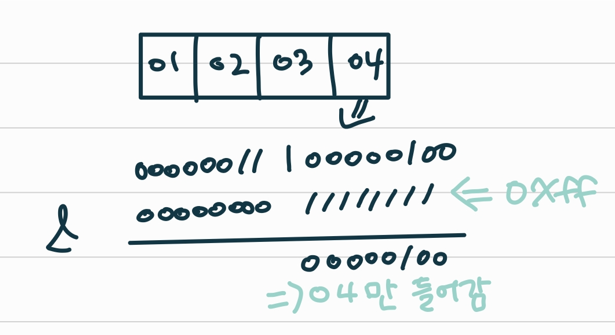 01 02 03 04
00000011 | 00000100
00000000 11111111 ⇐ 0xff
&
00000100
=> 04만 들어감